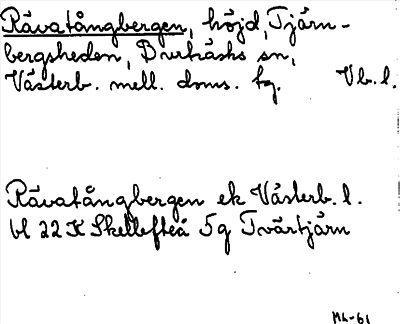 Rävatångbergen, höjd, Tjärn-
bergsheden, Burträsks sn,
Västerb. mell. doms. tg. Vb. l.
Rävatångbergen ek Västerb. l.
bl 22 K Skellefteå 5g Tvärtjärn
ML-61